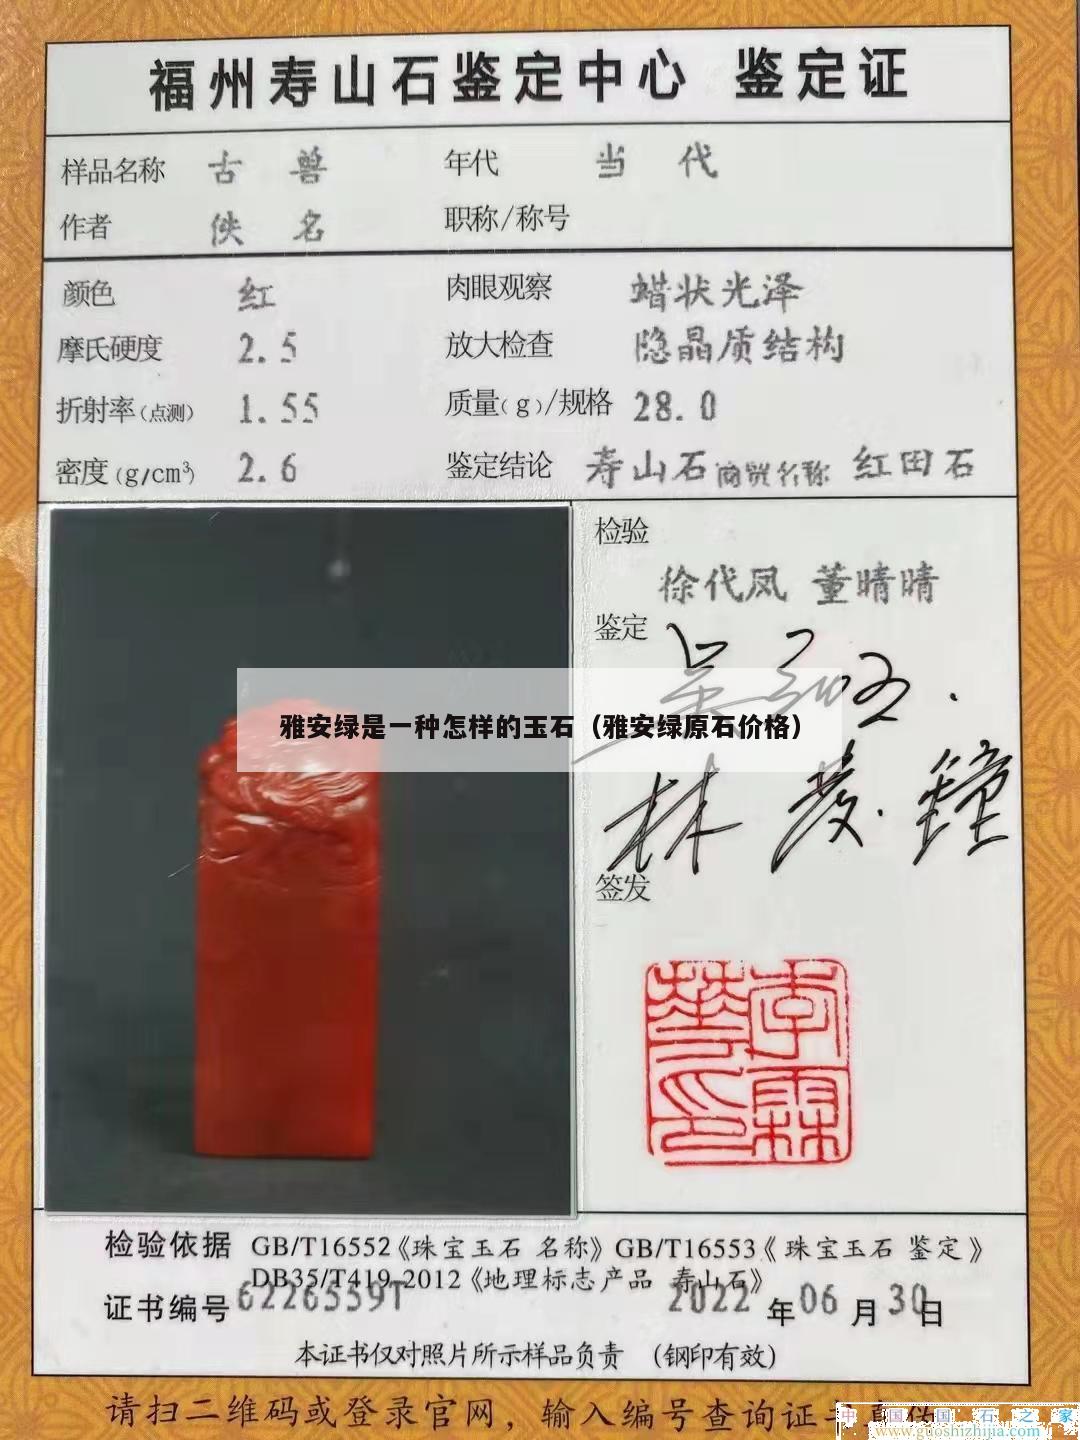 福州寿山石鉴定中心 鉴定证
样品名称 古兽 年代 当代
作者 佚名 职称/称号
颜色 红 肉眼观察 蜡状光泽
摩氏硬度 2.5 放大检查 隐晶质结构
折射率(点测) 1.55 质量(g)/规格 28.0
密度(g/cm³) 2.6 鉴定结论 寿山石 商贸名称 红田石
检验
徐代凤 董晴晴
鉴定
雅安绿是一种怎样的玉石（雅安绿原石价格）
签发
检验依据 GB/T16552《珠宝玉石 名称》GB/T16553《珠宝玉石 鉴定》
DB35/T419-2012《地理标志产品 寿山石》
证书编号 6226559T 2022年06月30日
本证书仅对照片所示样品负责 （钢印有效）
请扫二维码或登录官网，输入编号查询证书真伪
中国国石之家
www.guoshizhijia.com